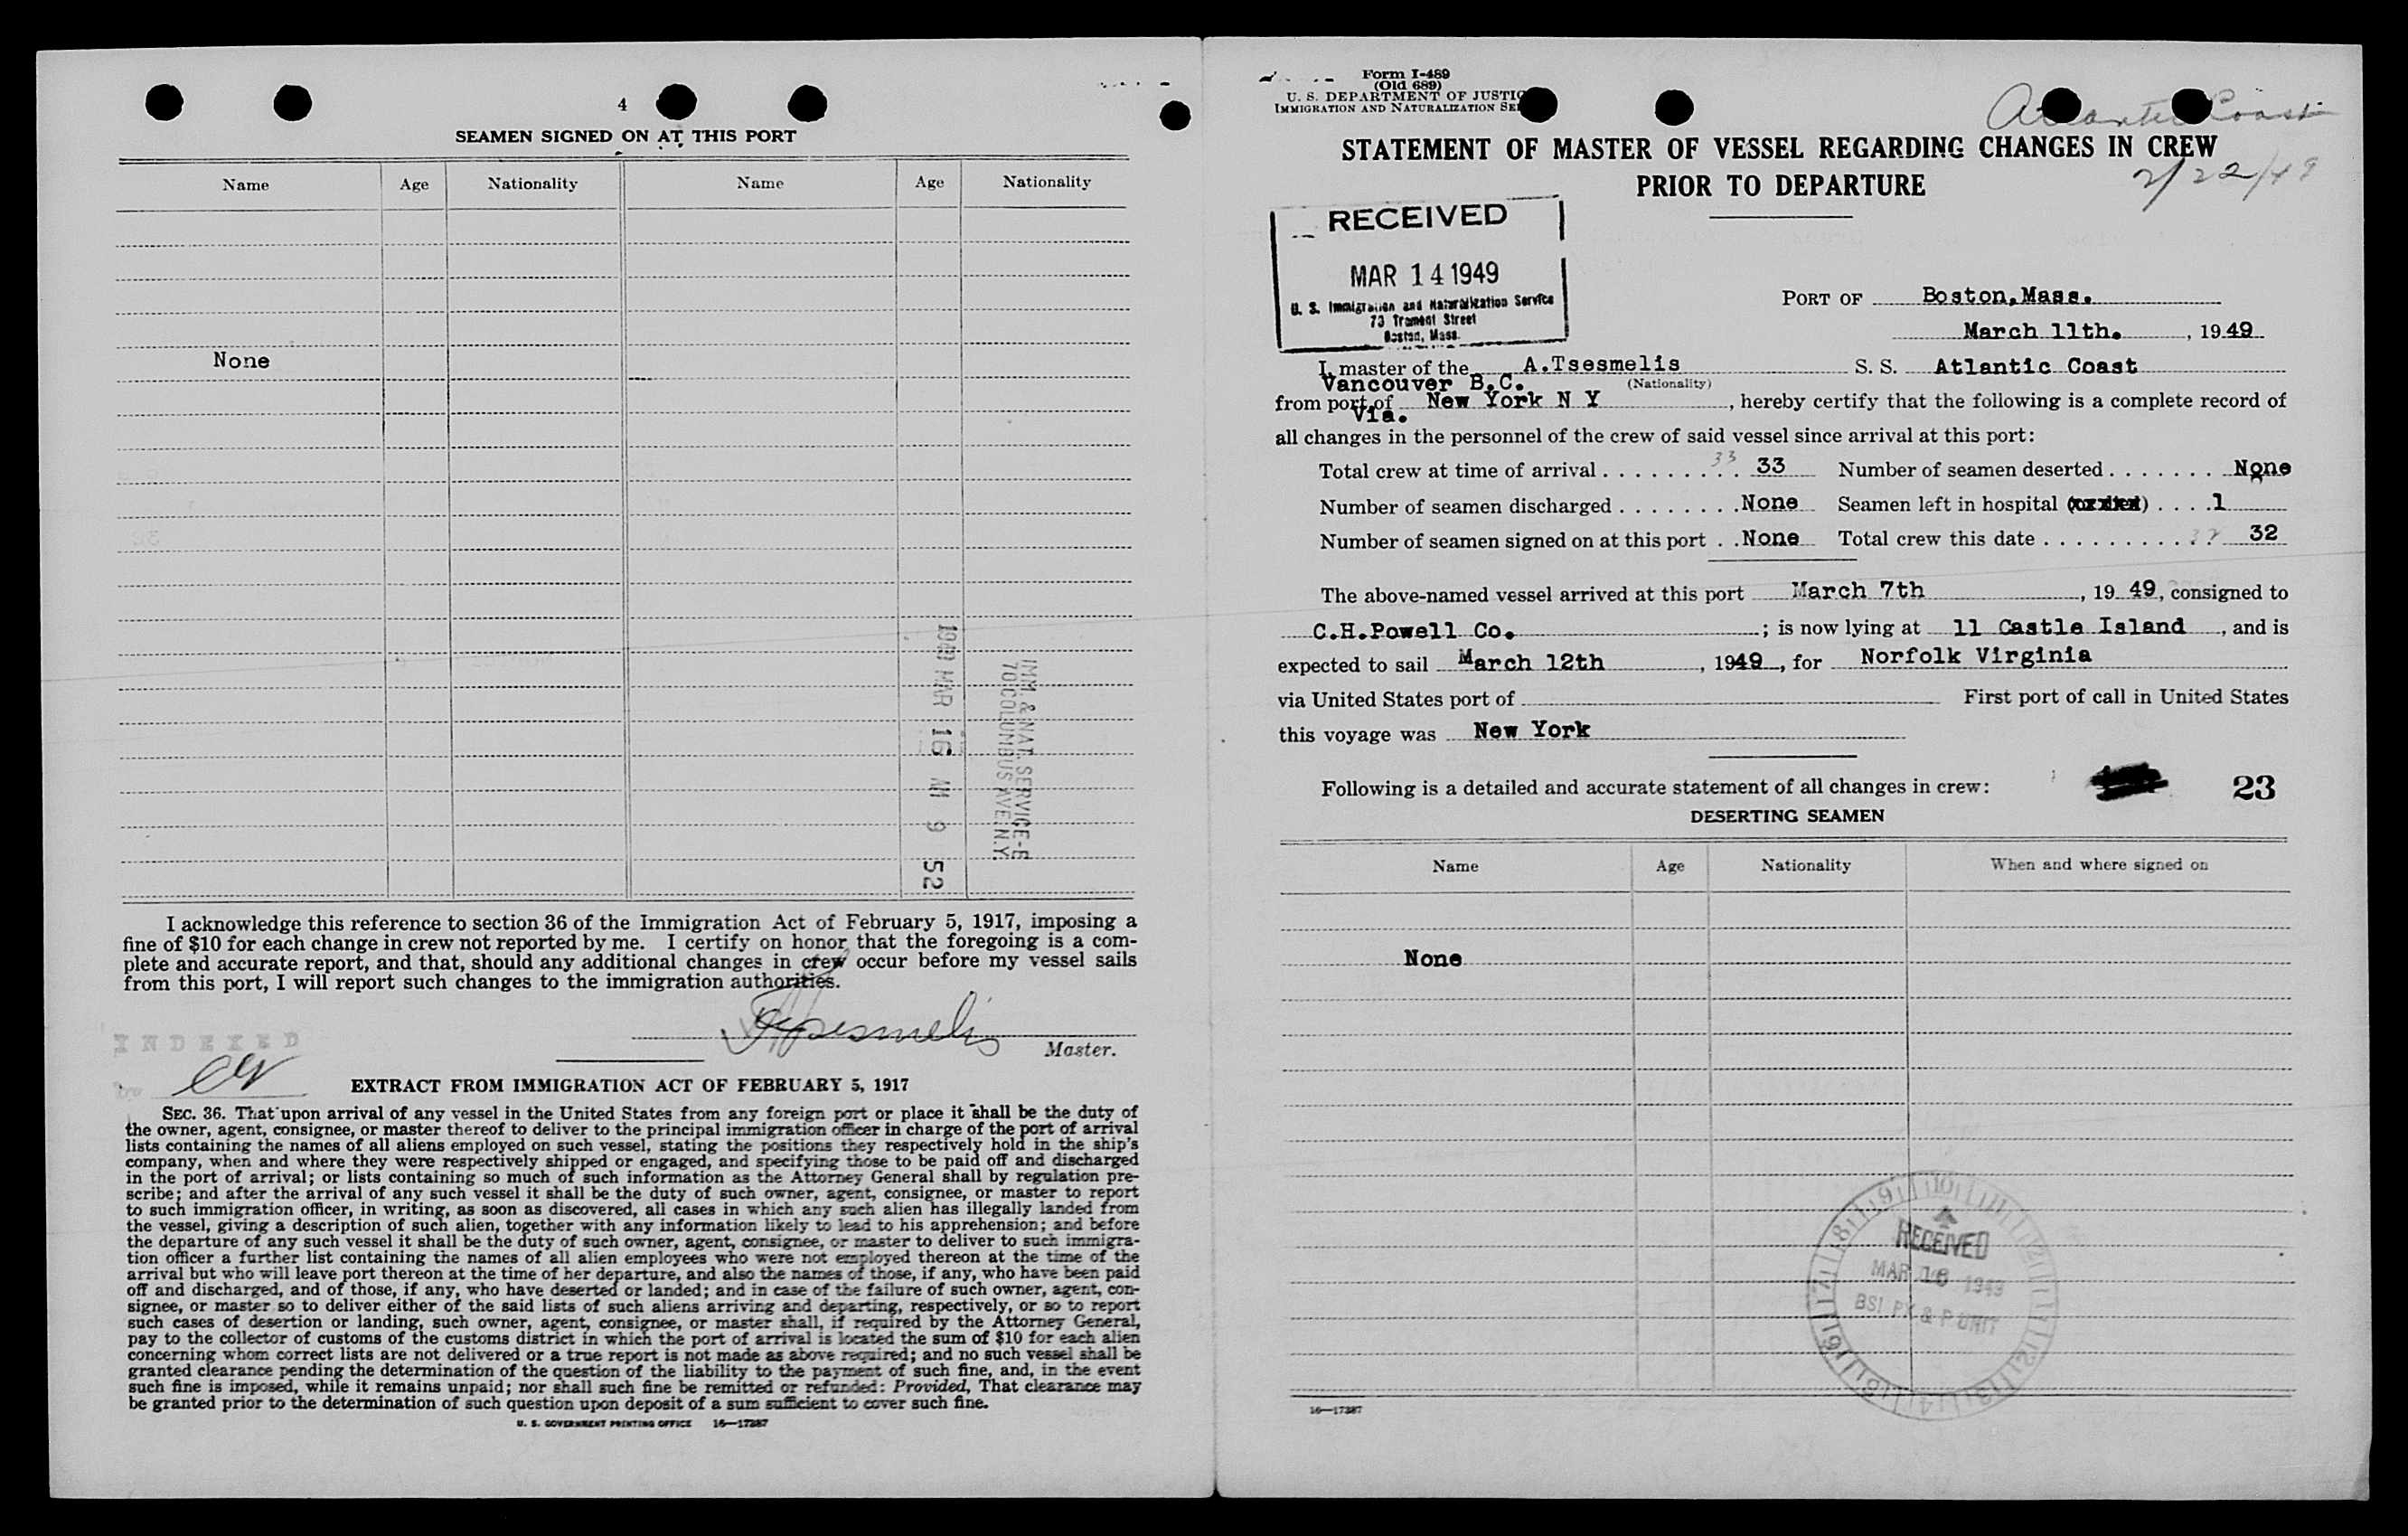 4
SEAMEN SIGNED ON AT THIS PORT
Name Age Nationality Name Age Nationality
None
1949 MAR 16 AM 9 52
IMM. & NAT. SERVICE-E
70 COLUMBUS AVE. N.Y.
I acknowledge this reference to section 36 of the Immigration Act of February 5, 1917, imposing a
fine of $10 for each change in crew not reported by me. I certify on honor that the foregoing is a com-
plete and accurate report, and that, should any additional changes in crew occur before my vessel sails
from this port, I will report such changes to the immigration authorities.
A Tsesmelis
Master.
INDEXED
EXTRACT FROM IMMIGRATION ACT OF FEBRUARY 5, 1917
SEC. 36. That upon arrival of any vessel in the United States from any foreign port or place it shall be the duty of
the owner, agent, consignee, or master thereof to deliver to the principal immigration officer in charge of the port of arrival
lists containing the names of all aliens employed on such vessel, stating the positions they respectively hold in the ship's
company, when and where they were respectively shipped or engaged, and specifying those to be paid off and discharged
in the port of arrival; or lists containing so much of such information as the Attorney General shall by regulation pre-
scribe; and after the arrival of any such vessel it shall be the duty of such owner, agent, consignee, or master to report
to such immigration officer, in writing, as soon as discovered, all cases in which any such alien has illegally landed from
the vessel, giving a description of such alien, together with any information likely to lead to his apprehension; and before
the departure of any such vessel it shall be the duty of such owner, agent, consignee, or master to deliver to such immigra-
tion officer a further list containing the names of all alien employees who were not employed thereon at the time of the
arrival but who will leave port thereon at the time of her departure, and also the names of those, if any, who have been paid
off and discharged, and of those, if any, who have deserted or landed; and in case of the failure of such owner, agent, con-
signee, or master so to deliver either of the said lists of such aliens arriving and departing, respectively, or so to report
such cases of desertion or landing, such owner, agent, consignee, or master shall, if required by the Attorney General,
pay to the collector of customs of the customs district in which the port of arrival is located the sum of $10 for each alien
concerning whom correct lists are not delivered or a true report is not made as above required; and no such vessel shall be
granted clearance pending the determination of the question of the liability to the payment of such fine, and, in the event
such fine is imposed, while it remains unpaid; nor shall such fine be remitted or refunded: Provided, That clearance may
be granted prior to the determination of such question upon deposit of a sum sufficient to cover such fine.
U. S. GOVERNMENT PRINTING OFFICE 16—17387
Form I-489
(Old 689)
U. S. DEPARTMENT OF JUSTIC
IMMIGRATION AND NATURALIZATION SE
Atlantic Coast
STATEMENT OF MASTER OF VESSEL REGARDING CHANGES IN CREW
PRIOR TO DEPARTURE
2/22/49
RECEIVED
MAR 14 1949
U. S. Immigration and Naturalization Service
73 Tremont Street
Boston, Mass.
PORT OF Boston, Mass.
March 11th. , 1949
I, master of the A.Tsesmelis S. S. Atlantic Coast
Vancouver B.C. (Nationality)
from port of New York N Y , hereby certify that the following is a complete record of
Via.
all changes in the personnel of the crew of said vessel since arrival at this port:
Total crew at time of arrival 33 33 Number of seamen deserted None
Number of seamen discharged None Seamen left in hospital (or died) 1
Number of seamen signed on at this port None Total crew this date 32 32
The above-named vessel arrived at this port March 7th , 19 49, consigned to
C.H.Powell Co. ; is now lying at 11 Castle Island , and is
expected to sail March 12th , 1949 , for Norfolk Virginia
via United States port of First port of call in United States
this voyage was New York
Following is a detailed and accurate statement of all changes in crew: 23
DESERTING SEAMEN
Name Age Nationality When and where signed on
None
RECEIVED
MAR 16 1949
BSI PX & P UNIT
16—17387